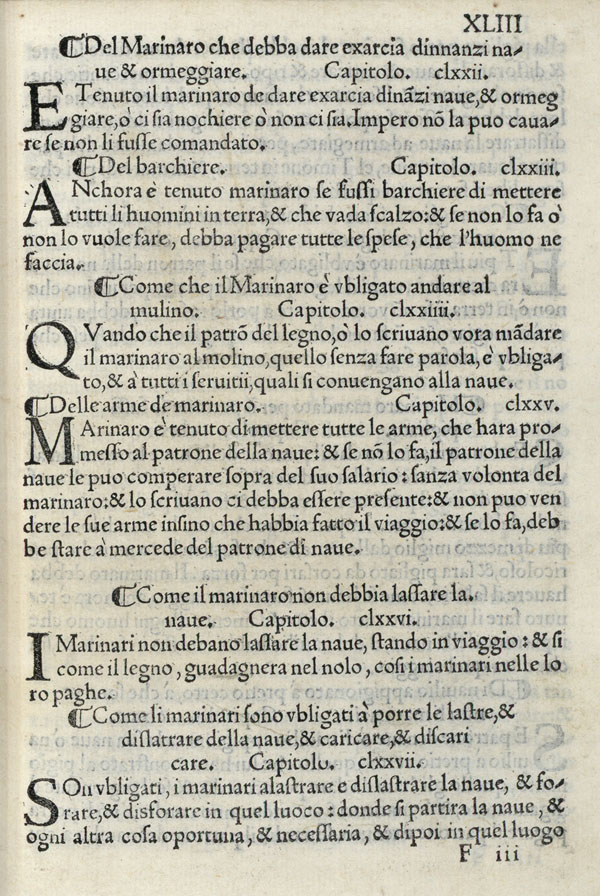 XLIII
¶Del Marinaro che debba dare exarcia dinnanzi na-
ue & ormeggiare. Capitolo. clxxii.
E Tenuto il marinaro de dare exarcia dinãzi naue, & ormeg
giare, o ci sia nochiere ò non ci sia. Impero nõ la puo caua-
re se non li fusse comandato.
¶Del barchiere. Capitolo. clxxiii.
ANchora è tenuto marinaro se fussi barchiere di mettere
tutti li huomini in terra, & che vada scalzo: & se non lo fa ò
non lo vuole fare, debba pagare tutte le spese, che l'huomo ne
faccia.
¶Come che il Marinaro è vbligato andare al
mulino. Capitolo. clxxiiii.
QVando che il patrõ del legno, ò lo scriuano vora mãdare
il marinaro al molino, quello senza fare parola, e' vbliga-
to, & à tutti i seruitii, quali si conuengano alla naue.
¶Delle arme de marinaro. Capitolo. clxxv.
MArinaro è tenuto di mettere tutte le arme, che hara pro-
messo al patrone della naue: & se nõ lo fa, il patrone della
naue le puo comperare sopra del suo salario: sanza volonta del
marinaro: & lo scriuano ci debba essere presente: & non puo ven
dere le sue arme insino che habbia fatto il viaggio: & se lo fa, deb
be stare à mercede del patrone di naue.
¶Come il marinaro non debbia lassare la
naue. Capitolo. clxxvi.
I Marinari non debano lassare la naue, stando in viaggio: & si
come il legno, guadagnera nel nolo, cosi i marinari nelle lo
ro paghe.
¶Come li marinari sono vbligati à porre le lastre, &
dislatrare della naue, & caricare, & discari
care. Capitolo. clxxvii.
SOn vbligati, i marinari alastrare e dislastrare la naue, & fo-
rare, & disforare in quel luoco: donde si partira la naue, &
ogni altra cosa oportuna, & necessaria, & dipoi in quel luogo
F iii